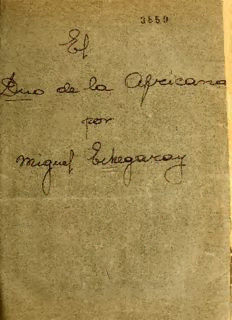 3859
El
Duo de la Africana
por
Miguel Echegaray